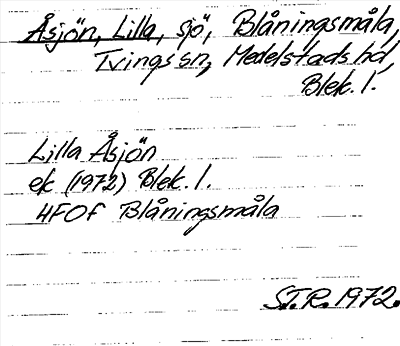 Åsjön, Lilla, sjö, Blåningsmåla,
Tvings sn, Medelstads hd,
Blek. l.
Lilla Åsjön
ek (1972) Blek. l.
4F0f Blåningsmåla
ST.R. 1972.